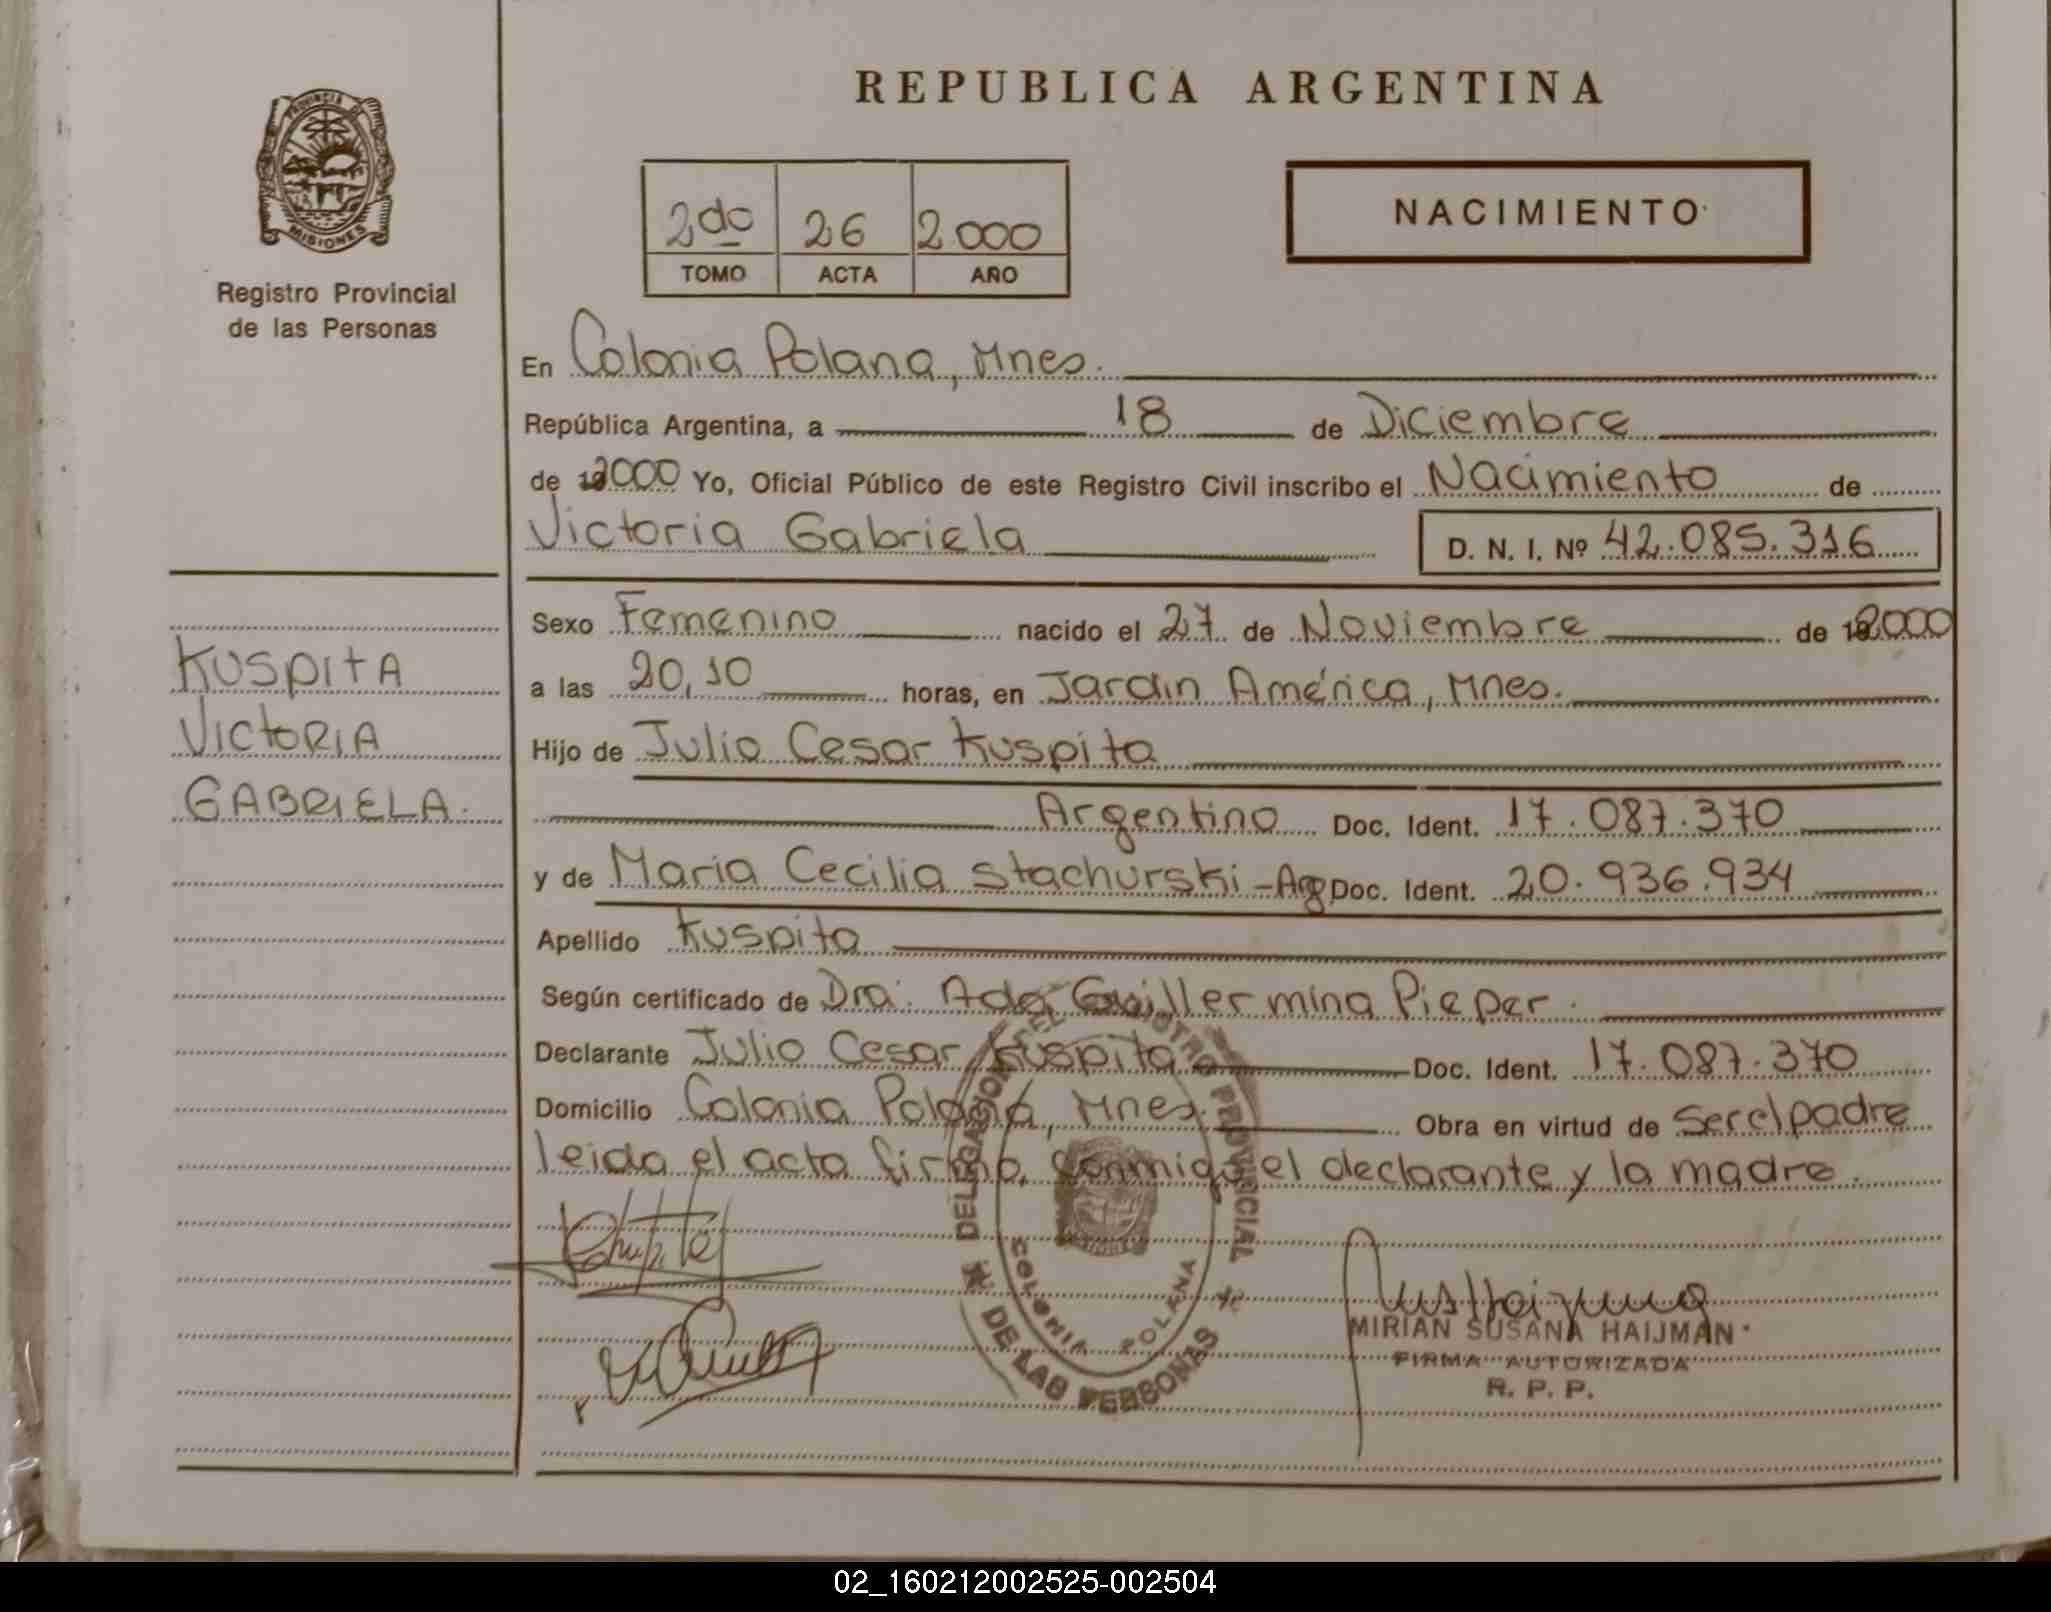 REPUBLICA ARGENTINA
PROVINCIA DE
MISIONES
Registro Provincial
de las Personas
2do 26 2.000
TOMO ACTA AÑO
NACIMIENTO
En Colonia Polana, Mnes.
República Argentina, a 18 de Diciembre
de 2000 Yo, Oficial Público de este Registro Civil inscribo el Nacimiento de
Victoria Gabriela D. N. I. Nº 42.085.316
Sexo Femenino nacido el 27 de Noviembre de 2000
a las 20,10 horas, en Jardin América, Mnes.
Hijo de Julio Cesar Kuspita
Argentino Doc. Ident. 17.087.370
y de Maria Cecilia Stachurski - Arg Doc. Ident. 20.936.934
Apellido Kuspita
Según certificado de Dra. Ada Guillermina Pieper.
Declarante Julio Cesar Kuspita Doc. Ident. 17.087.370
Domicilio Colonia Polana, Mnes. Obra en virtud de ser el padre
leida el acta firma conmigo el declarante y la madre.
KUSPITA
VICTORIA
GABRIELA.
DELEGACION DEL REGISTRO PROVINCIAL
DE LAS PERSONAS
COLONIA POLANA
MIRIAN SUSANA HAIJMAN
FIRMA AUTORIZADA
R. P. P.
02_160212002525-002504